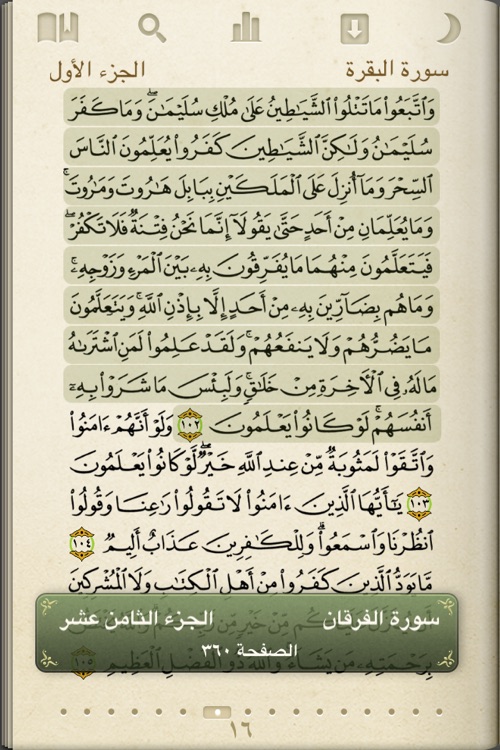 سورة البقرة الجزء الأول
وَٱتَّبَعُوا۟ مَا تَتْلُوا۟ ٱلشَّيَـٰطِينُ عَلَىٰ مُلْكِ سُلَيْمَـٰنَ ۖ وَمَا كَفَرَ
سُلَيْمَـٰنُ وَلَـٰكِنَّ ٱلشَّيَـٰطِينَ كَفَرُوا۟ يُعَلِّمُونَ ٱلنَّاسَ
ٱلسِّحْرَ وَمَآ أُنزِلَ عَلَى ٱلْمَلَكَيْنِ بِبَابِلَ هَـٰرُوتَ وَمَـٰرُوتَ ۚ
وَمَا يُعَلِّمَانِ مِنْ أَحَدٍ حَتَّىٰ يَقُولَآ إِنَّمَا نَحْنُ فِتْنَةٌ فَلَا تَكْفُرْ ۖ
فَيَتَعَلَّمُونَ مِنْهُمَا مَا يُفَرِّقُونَ بِهِۦ بَيْنَ ٱلْمَرْءِ وَزَوْجِهِۦ ۚ
وَمَا هُم بِضَآرِّينَ بِهِۦ مِنْ أَحَدٍ إِلَّا بِإِذْنِ ٱللَّهِ ۚ وَيَتَعَلَّمُونَ
مَا يَضُرُّهُمْ وَلَا يَنفَعُهُمْ ۚ وَلَقَدْ عَلِمُوا۟ لَمَنِ ٱشْتَرَىٰهُ
مَا لَهُۥ فِى ٱلْـَٔاخِرَةِ مِنْ خَلَـٰقٍ ۚ وَلَبِئْسَ مَا شَرَوْا۟ بِهِۦٓ
أَنفُسَهُمْ ۚ لَوْ كَانُوا۟ يَعْلَمُونَ ١٠٢ وَلَوْ أَنَّهُمْ ءَامَنُوا۟
وَٱتَّقَوْا۟ لَمَثُوبَةٌ مِّنْ عِندِ ٱللَّهِ خَيْرٌ ۖ لَّوْ كَانُوا۟ يَعْلَمُونَ
١٠٣ يَـٰٓأَيُّهَا ٱلَّذِينَ ءَامَنُوا۟ لَا تَقُولُوا۟ رَٰعِنَا وَقُولُوا۟
ٱنظُرْنَا وَٱسْمَعُوا۟ ۗ وَلِلْكَـٰفِرِينَ عَذَابٌ أَلِيمٌ ١٠٤
مَّا يَوَدُّ ٱلَّذِينَ كَفَرُوا۟ مِنْ أَهْلِ ٱلْكِتَـٰبِ وَلَا ٱلْمُشْرِكِينَ
سورة الفرقان الجزء الثامن عشر
الصفحة ٣٦٠
بِرَحْمَتِهِۦ مَن يَشَآءُ ۚ وَٱللَّهُ ذُو ٱلْفَضْلِ ٱلْعَظِيمِ ١٠٥
١٦